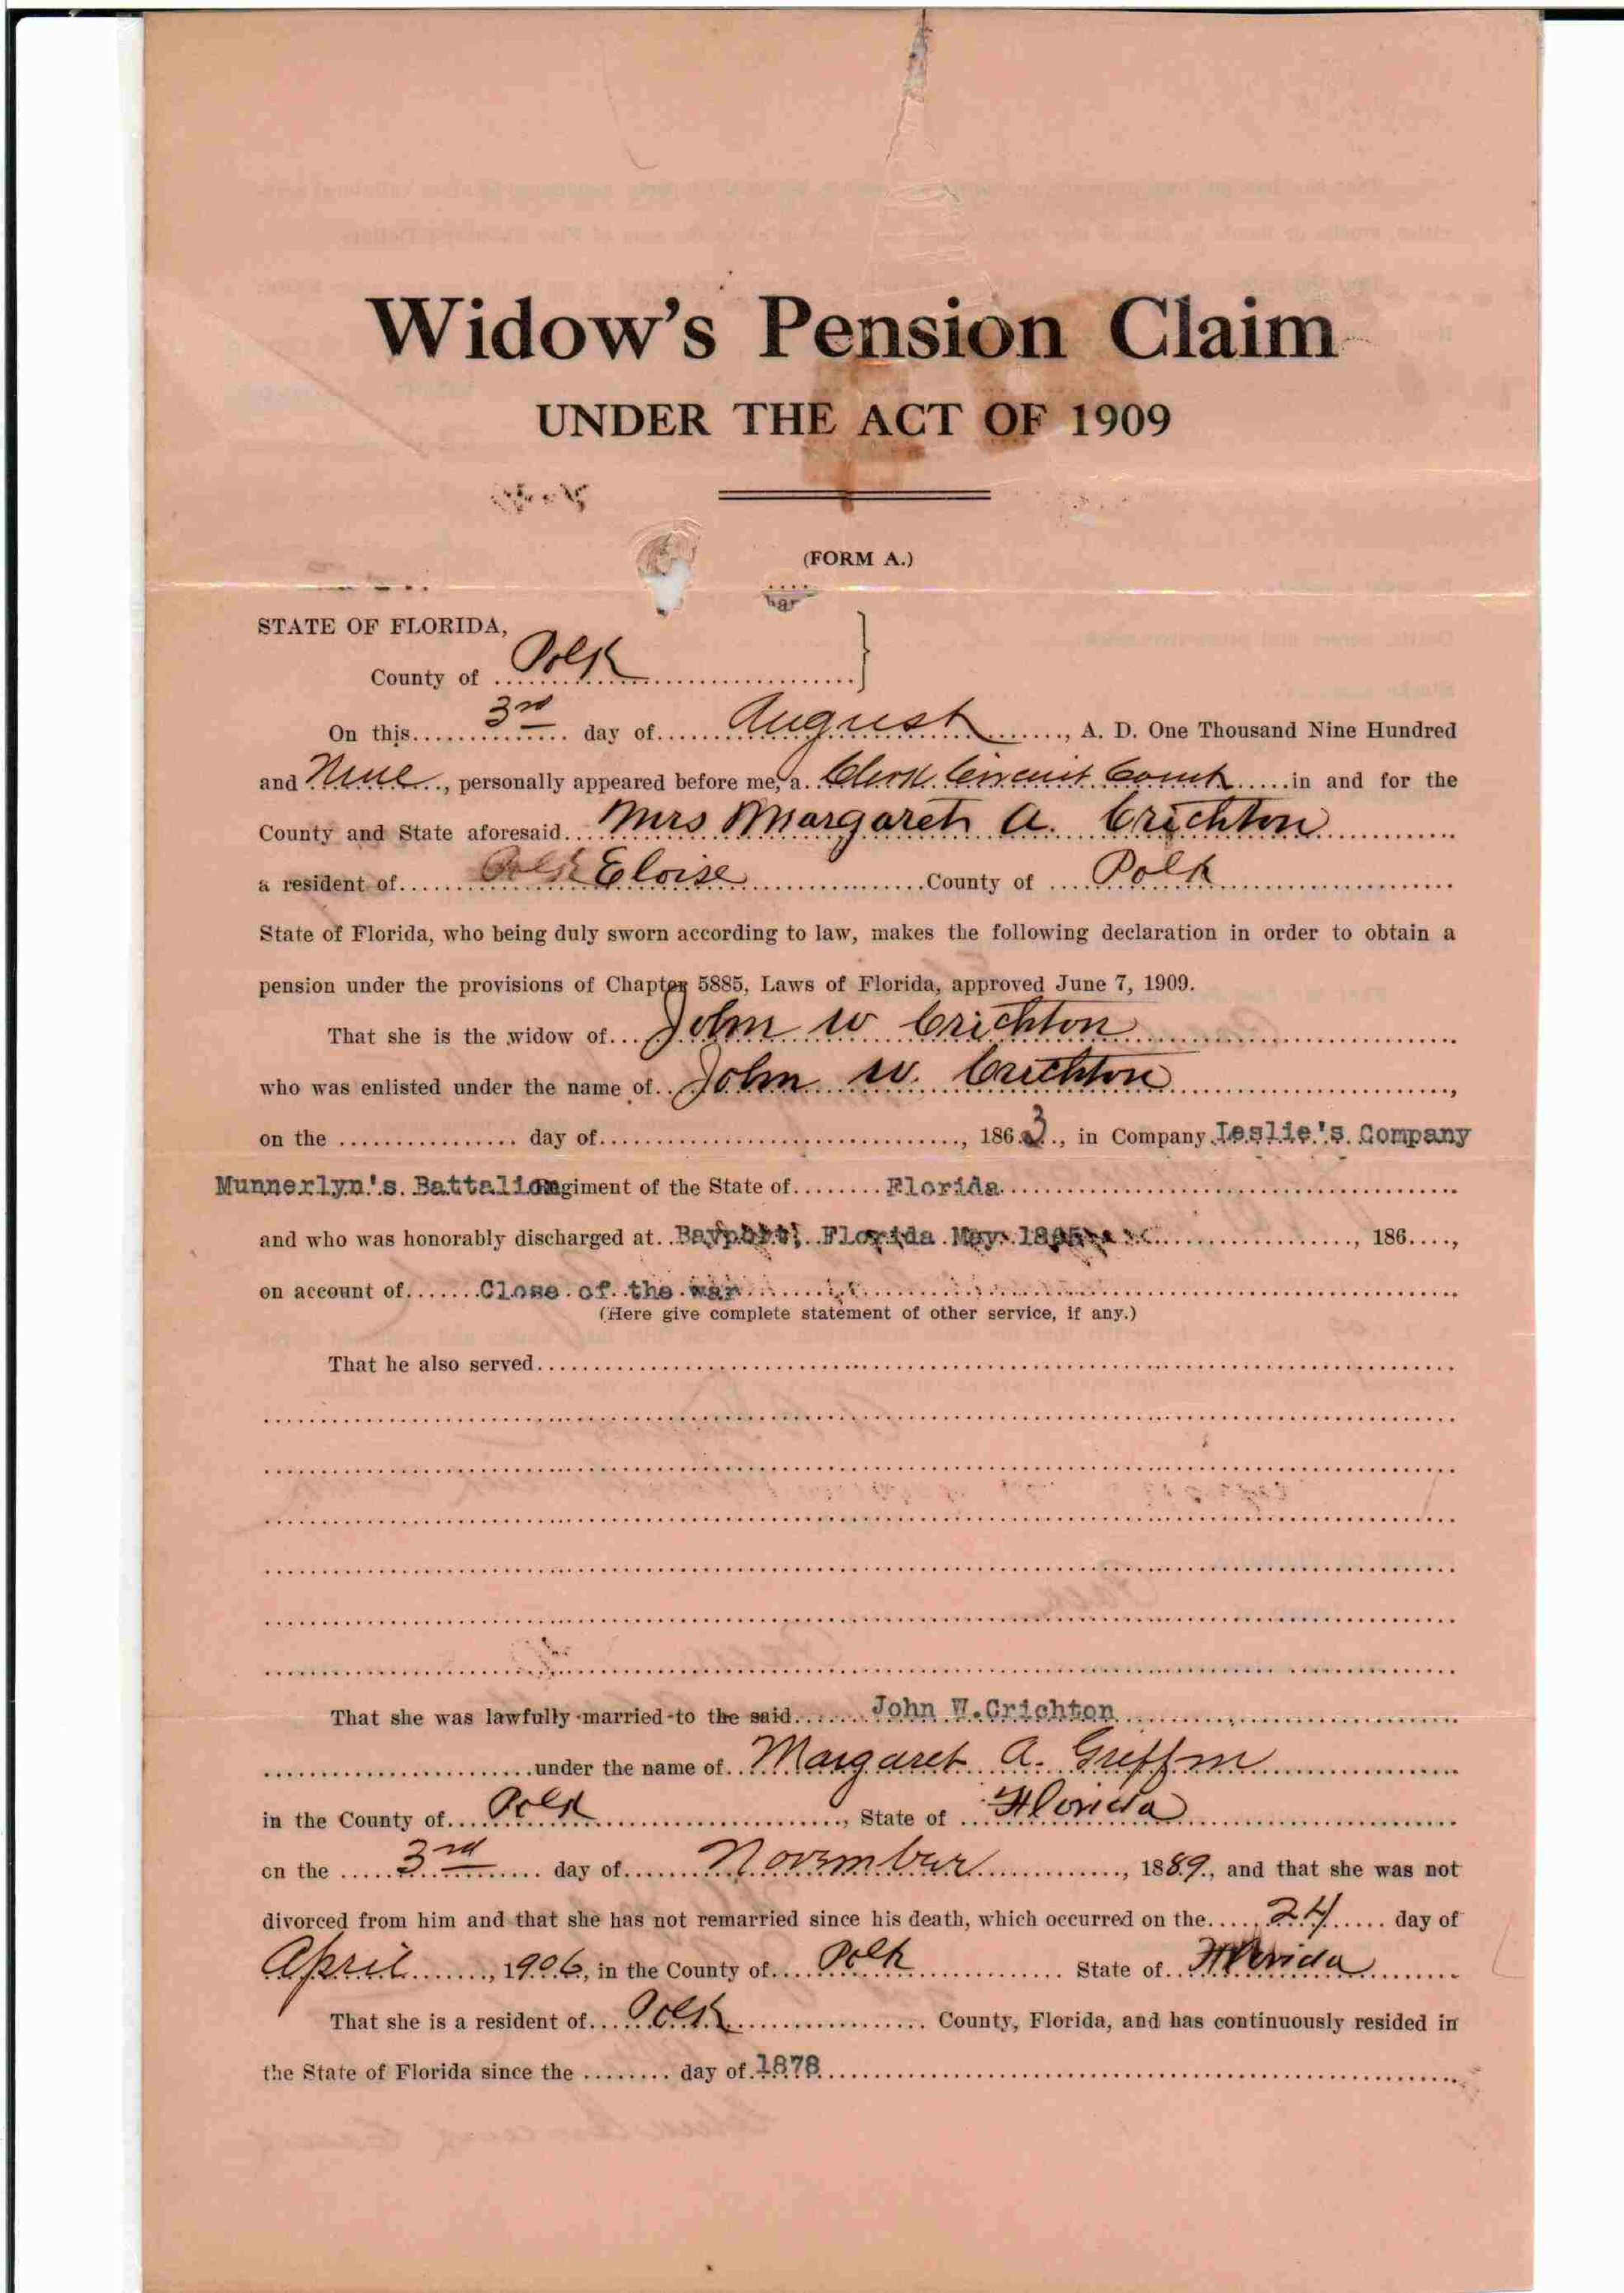 Widow's Pension Claim
UNDER THE ACT OF 1909
(FORM A.)
STATE OF FLORIDA,
County of Polk
On this 3rd day of August, A. D. One Thousand Nine Hundred
and Nine, personally appeared before me, a Clerk Circuit Court in and for the
County and State aforesaid Mrs Margaret A. Crichton
a resident of Eloise County of Polk
State of Florida, who being duly sworn according to law, makes the following declaration in order to obtain a
pension under the provisions of Chapter 5885, Laws of Florida, approved June 7, 1909.
That she is the widow of John W Crichton
who was enlisted under the name of John W. Crichton,
on the day of, 1863, in Company Leslie's Company
Munnerlyn's Battalion Regiment of the State of Florida
and who was honorably discharged at Bayport, Florida May 1865, 186,
on account of Close of the war
(Here give complete statement of other service, if any.)
That he also served
That she was lawfully married to the said John W. Crichton
under the name of Margaret A. Griffin
in the County of Polk, State of Florida
on the 3rd day of November, 1889, and that she was not
divorced from him and that she has not remarried since his death, which occurred on the 24 day of
April, 1906, in the County of Polk State of Florida
That she is a resident of Polk County, Florida, and has continuously resided in
the State of Florida since the day of 1878